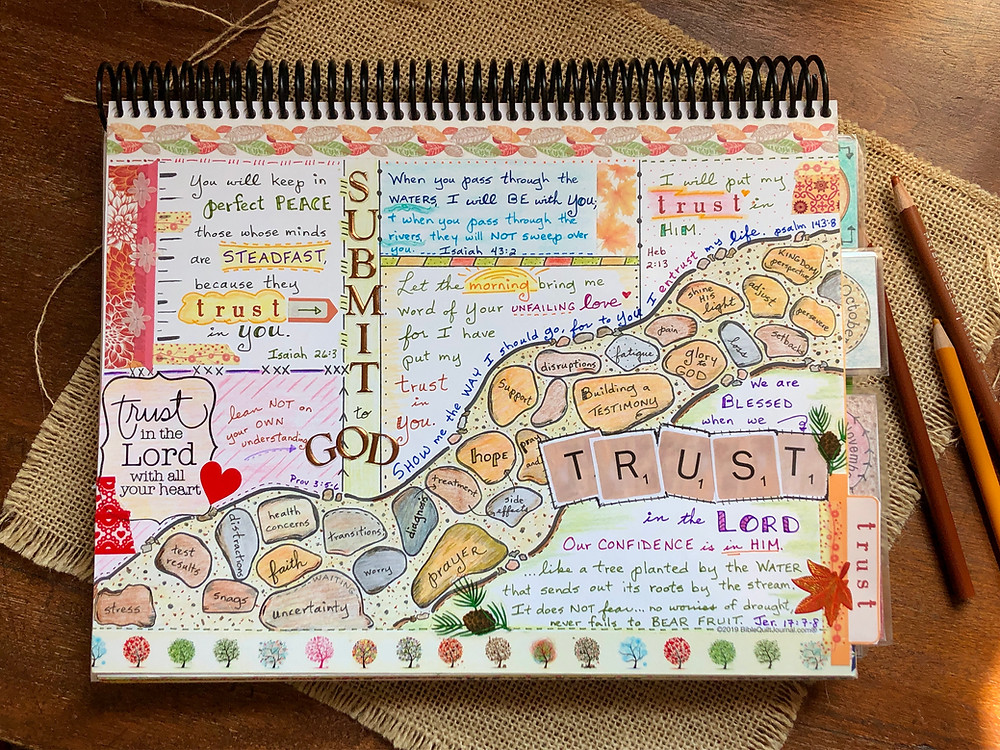 You will keep in
perfect PEACE
those whose minds
are STEADFAST,
because they
trust
in you.
Isaiah 26:3
SUBMIT
to
GOD
When you pass through the
WATERS, I will BE with you;
+ when you pass through the
rivers, they will NOT sweep over
you. Isaiah 43:2
I will put my
trust in
HIM.
Heb
2:13
Let the morning bring me
word of your UNFAILING love
for I have
put my
trust
in
you.
SHOW me the WAY I should go, for to you I entrust my life. psalm 143:8
trust
in the
Lord
with all
your heart
lean NOT on
your OWN
understanding
Prov 3:5-6
KINGDOM
perspective
adjust
shine
HIS
light
persevere
pain
loss
setbacks
glory
to
GOD
fatigue
disruptions
Building a
TESTIMONY
support
hope
pray
and
treatment
side
effects
diagnosis
PRAYER
transitions
worry
health
concerns
distractions
faith
WAITING
uncertainty
test
results
snags
stress
We are
BLESSED
when we
TRUST
1 1 1 1
in the LORD
OUR CONFIDENCE is in HIM.
...like a tree planted by the WATER
that sends out its roots by the stream.
It does NOT fear... no worries of drought,
never fails to BEAR FRUIT. Jer. 17:7-8
©2019 BibleQuiltJournal.com
trust